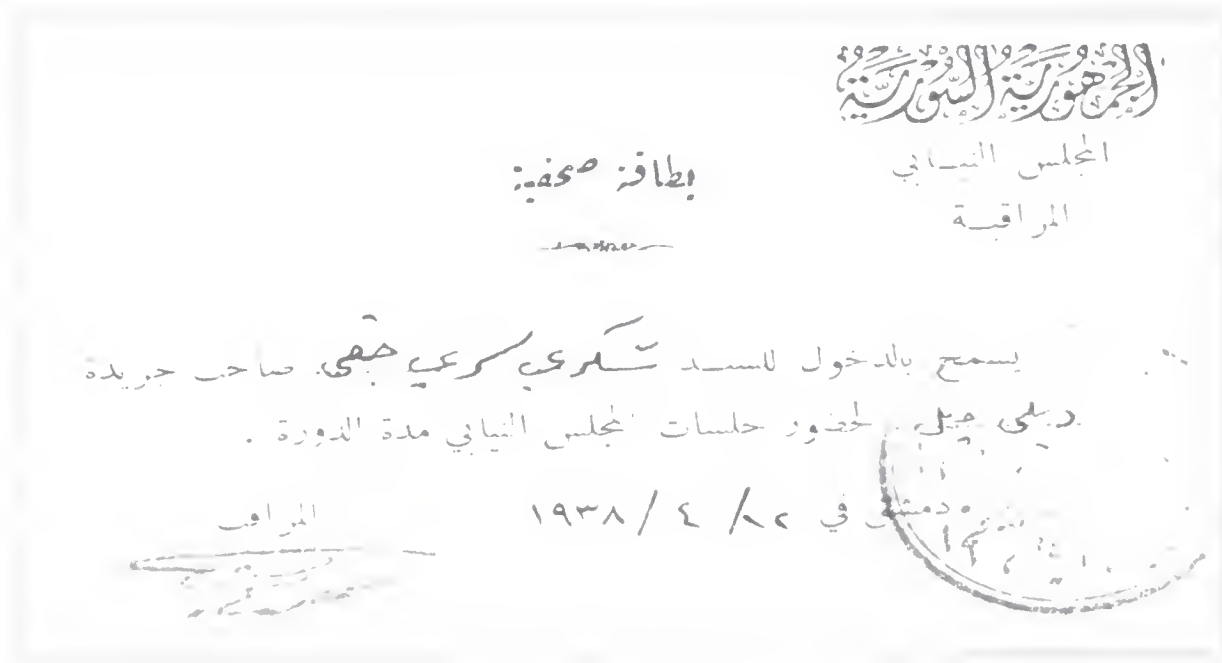 الجمهورية السورية
المجلس النيابي
المراقبة
بطاقة صحفية
يسمح بالدخول للسيد شكري صاحب جريدة
لحضور جلسات المجلس النيابي مدة الدورة .
دمشق في / ٤ / ١٩٣٨
المراقب